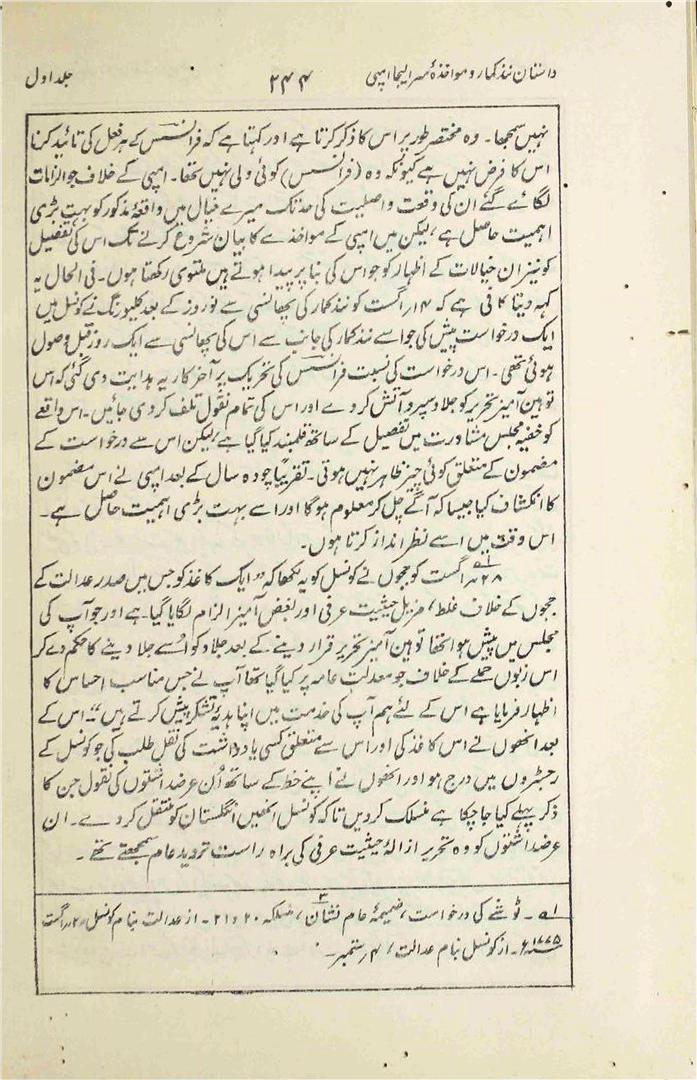 داستان نندکمار و مواخذۂ سر الیجا امپی ۲۴۴ جلد اول
نہیں سمجھا۔ وہ مختصر طور پر اس کا ذکر کرتا ہے اور کہتا ہے کہ فرانسس کے ہر فعل کی تائید کرنا
اس کا فرض نہیں ہے کیونکہ وہ (فرانسس) کوئی ولی نہیں تھا۔ امپی کے خلاف جو الزامات
لگائے گئے ان کی وقعت و اصلیت کی حد تک میرے خیال میں واقعۂ مذکور کو بہت بڑی
اہمیت حاصل ہے، لیکن میں امپی کے مواخذے کا بیان شروع کرنے تک اس کی تفصیل
کو نیز ان خیالات کے اظہار کو جو اس کی بنا پر پیدا ہوتے ہیں ملتوی رکھتا ہوں۔ فی الحال یہ
کہہ دینا کافی ہے کہ ۱۴ اگست کو نندکمار کی پھانسی سے نو روز کے بعد کلیورنگ نے کونسل میں
ایک درخواست پیش کی جو اسے نندکمار کی جانب سے اس کی پھانسی سے ایک روز قبل وصول
ہوئی تھی۔ اس درخواست کی نسبت فرانسس کی تحریک پر آخر کار یہ ہدایت دی گئی کہ اس
توہین آمیز تحریر کو جلاد سپرد آتش کر دے اور اس کی تمام نقول تلف کر دی جائیں۔ اس واقعے
کو خفیہ مجلس مشاورت میں تفصیل کے ساتھ قلمبند کیا گیا ہے، لیکن اس سے درخواست کے
مضمون کے متعلق کوئی چیز ظاہر نہیں ہوتی۔ تقریباً چودہ سال کے بعد امپی نے اس مضمون
کا انکشاف کیا جیسا کہ آگے چل کر معلوم ہوگا اور اسے بہت بڑی اہمیت حاصل ہے۔
اس وقت میں اسے نظر انداز کرتا ہوں۔
۲۸ اگست کو ججوں نے کونسل کو یہ لکھا کہ "ایک کاغذ کو جس میں صدر عدالت کے
ججوں کے خلاف غلط، مزیل حیثیت عرفی اور بغض آمیز الزام لگایا گیا ہے اور جو آپ کی
مجلس میں پیش ہوا تھا توہین آمیز تحریر قرار دینے کے بعد جلاد کو اُسے جلا دینے کا حکم دے کر
اس زبوں حملے کے خلاف جو معدلت عامہ پر کیا گیا تھا آپ نے جس مناسب احساس کا
اظہار فرمایا ہے اس کے لئے ہم آپ کی خدمت میں اپنا ہدیۂ تشکر پیش کرتے ہیں"۔ اس کے
بعد انھوں نے اس کاغذ کی اور اس سے متعلق کسی یادداشت کی نقل طلب کی جو کونسل کے
رجسٹروں میں درج ہو اور انھوں نے اپنے خط کے ساتھ اُن عرضداشتوں کی نقول جن کا
ذکر پہلے کیا جا چکا ہے منسلک کر دیں تاکہ کونسل انھیں انگلستان کو منتقل کر دے۔ ان
عرضداشتوں کو وہ تحریر ازالۂ حیثیت عرفی کی براہ راست تردید عام سمجھتے تھے۔
لہ۔ ٹوشے کی درخواست، ضمیمۂ عام نشان ۳، منسلکہ ۲۰ و ۲۱۔ از عدالت بنام کونسل ۲۸ اگست
۱۷۷۵ء۔ از کونسل بنام عدالت، ۴ ستمبر۔